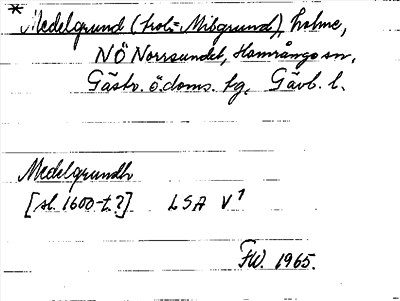 * Medelgrund (trol = Milgrund), holme,
NÖ Norrsundet, Hamrånge sn,
Gästr. ö. doms. hg, Gävl. l.
Medelgrundh
[sl. 1600-t.?] LSA V 1
FW. 1965.